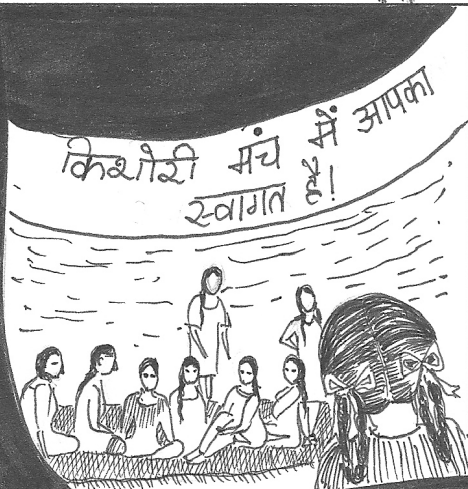 किशोरी मंच में आपका
स्वागत है!